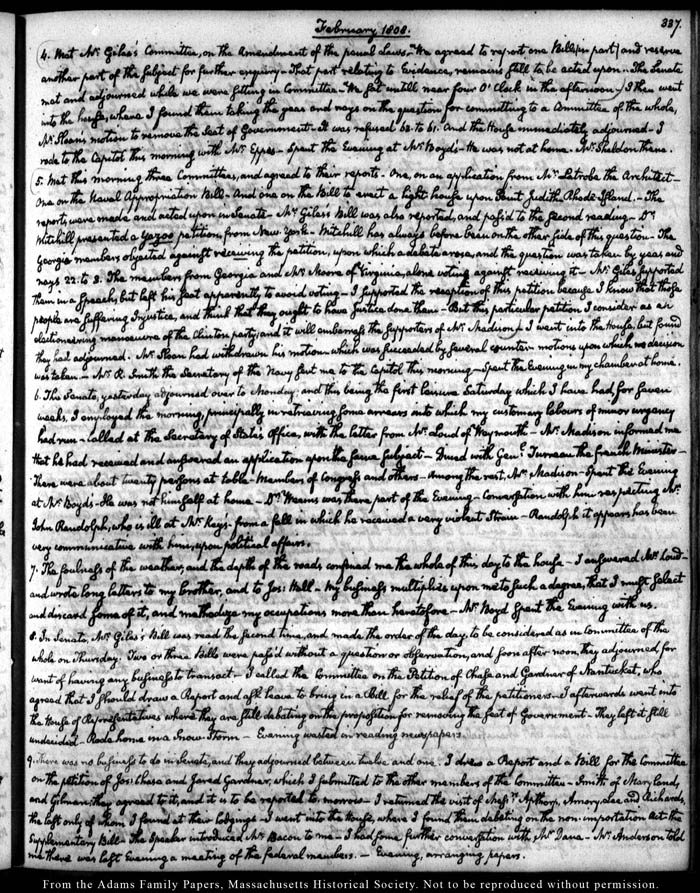 February 1808.
337.
4. Met Mr. Giles's Committee, on the Amendment of the penal Laws — We agreed to report one Bill (in part) and reserve
another part of the Subject for further enquiry — That part relating to Evidence, remains still to be acted upon — The Senate
met and adjourned while we were sitting in Committee — We sat untill near four O'Clock in the afternoon — I then went
into the house, where I found them taking the yeas and nays on the question for committing to a Committee of the whole,
Mr. Sloan's motion to remove the Seat of Government — It was refused 68 to 61. And the House immediately adjourned — I
rode to the Capitol this morning with Mr. Eppes — Spent the Evening at Mr. Boyd's — He was not at home — Mr. Sheldon there.
5. Met this morning three Committees, and agreed to their reports — One, on an application from Mr. Latrobe the Architect —
One on the Naval Appropriation Bill — And one on the Bill to erect a light house upon Point Judith, Rhode-Island. — The
reports, were made and acted upon in Senate — Mr. Giles's Bill was also reported, and pass'd to the second reading — Dr.
Mitchill presented a Yazoo petition, from New York — Mitchill has always before been on the other side of this question — The
Georgia members objected against receiving the petition, upon which a debate arose, and the question was taken by yeas and
nays 22. to 8. The members from Georgia and Mr. Moore of Virginia, alone voting against receiving it — Mr. Giles supported
them in a Speech, but left his seat apparently to avoid voting — I supported the reception of this petition because I know that those
people are suffering Injustice, and think that they ought to have Justice done them — But this particular petition I consider as an
electioneering manoeuvre of the Clinton party; and it will embarrass the supporters of Mr. Madison. I went into the House, but found
they had adjourned. Mr. Sloan had withdrawn his motion — which was succeeded by several counter-motions upon which no decision
was taken — Mr. R. Smith the Secretary of the Navy sent me to the Capitol this morning — Spent the Evening in my chamber at home.
6. The Senate, yesterday adjourned over to Monday; and this being the first leisure Saturday which I have had for seven
weeks, I employed the morning, principally in retrieving some arrears into which my customary labours of minor urgency
had run — Called at the Secretary of State's Office, with the letter from Mr. Loud of Weymouth — Mr. Madison informed me
that he had received and answered an application upon the same subject — Dined with Genl. Turreau the French Minister —
There were about twenty persons at table — Members of Congress and others — Among the rest, Mr. Madison — Spent the Evening
at Mr. Boyd's — He was not himself at home — Dr. Weems was there part of the Evening — Conversation with him respecting Mr.
John Randolph, who is ill at Mr. Key's — from a fall in which he received a very violent Strain — Randolph it appears has been
very communicative with him, upon political affairs.
7. The foulness of the weather, and the depth of the roads confined me the whole of this day to the house — I answered Mr. Loud —
and wrote long letters to my brother, and to Jos: Hall — My business multiplies upon me to such a degree, that I must select
and discard some of it, and methodize my occupations more than heretofore — Mr. Boyd spent the Evening with us.
8. In Senate, Mr. Giles's Bill was read the second time, and made the order of the day, to be considered as in Committee of the
whole on Thursday. Two or three Bills were pass'd without a question or observation, and soon after noon, they adjourned for
want of having any business to transact — I called the Committee on the Petition of Chase and Gardner of Nantucket, who
agreed that I should draw a Report and ask leave to bring in a Bill for the relief of the petitioners — I afterwards went into
the House of Representatives where they are still debating on the proposition for removing the Seat of Government — They left it still
undecided — Rode home in a Snow-Storm — Evening wasted in reading newspapers.
9. There was no business to do in Senate, and they adjourned between twelve and one. I drew a Report and a Bill for the Committee
on the petition of Jos: Chase and Jared Gardner, which I submitted to the other members of the Committee — Smith of Maryland,
and Gilman; they agreed to it, and it is to be reported to-morrow — I returned the visit of Messrs. Apthorp, Amory, Lee and Richards,
the last only of whom I found at their lodgings — I went into the House, where I found them debating on the non-importation Act the
Supplementary Bill — The Speaker introduced Mr. Bacon to me — I had some further conversation with Mr. Dana — Mr. Anderson told
me there was last Evening a meeting of the federal members. — Evening, arranging papers.
From the Adams Family Papers, Massachusetts Historical Society. Not to be reproduced without permission.